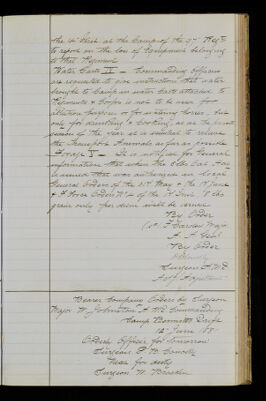 the 14 Inst at the Camp of the 3rd Regt
to report on the loss of Equipment belonging
to that Regiment
Water Carts II — Commanding Officers
are requested to give instructions that water
brought to Camp in water carts attached to
Regiments & Corps is not to be used for
ablution purposes or for watering horses, but
only for drinking & cooking, as at the present
season of the year it is essential to relieve
the Transport Animals as far as possible
Forage I — It is notified for general
information that when the Oble Oat
that was authorized in local
General Orders of the 31st May & the 1st June
& Force Orders No of the June the
grain only per diem will be issued
By Order
Major
A. A. Genl
By Order
Surgeon A.M.D.
Bearer Company Orders by Surgeon
Major W. Johnston A.M.D. Commanding
Camp Drift
12 June 188
Orderly Officer for tomorrow
Surgeon P. B.
Next for duty
Surgeon W.